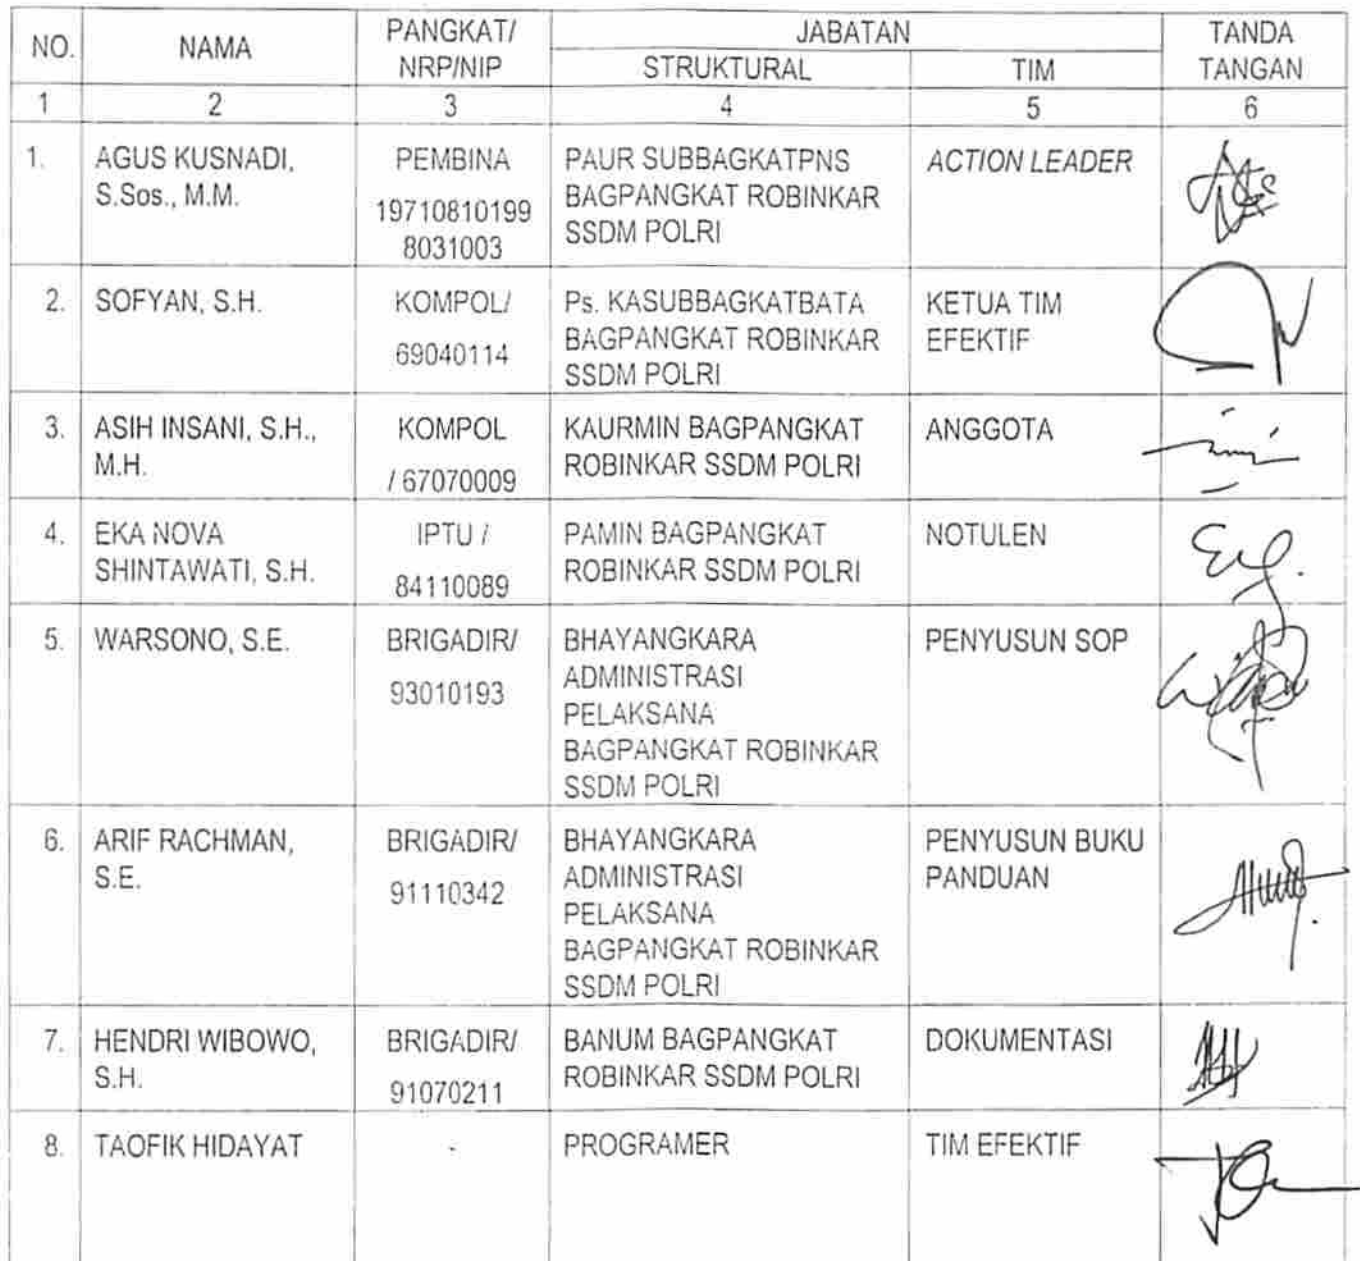 NO.
NAMA
PANGKAT/
NRP/NIP
JABATAN
STRUKTURAL
TIM
TANDA
TANGAN
1
2
3
4
5
6
1.
AGUS KUSNADI,
S.Sos., M.M.
PEMBINA
19710810199
8031003
PAUR SUBBAGKATPNS
BAGPANGKAT ROBINKAR
SSDM POLRI
ACTION LEADER
2.
SOFYAN, S.H.
KOMPOL/
69040114
Ps. KASUBBAGKATBATA
BAGPANGKAT ROBINKAR
SSDM POLRI
KETUA TIM
EFEKTIF
3.
ASIH INSANI, S.H.,
M.H.
KOMPOL
/ 67070009
KAURMIN BAGPANGKAT
ROBINKAR SSDM POLRI
ANGGOTA
4.
EKA NOVA
SHINTAWATI, S.H.
IPTU /
84110089
PAMIN BAGPANGKAT
ROBINKAR SSDM POLRI
NOTULEN
5.
WARSONO, S.E.
BRIGADIR/
93010193
BHAYANGKARA
ADMINISTRASI
PELAKSANA
BAGPANGKAT ROBINKAR
SSDM POLRI
PENYUSUN SOP
6.
ARIF RACHMAN,
S.E.
BRIGADIR/
91110342
BHAYANGKARA
ADMINISTRASI
PELAKSANA
BAGPANGKAT ROBINKAR
SSDM POLRI
PENYUSUN BUKU
PANDUAN
7.
HENDRI WIBOWO,
S.H.
BRIGADIR/
91070211
BANUM BAGPANGKAT
ROBINKAR SSDM POLRI
DOKUMENTASI
8.
TAOFIK HIDAYAT
-
PROGRAMER
TIM EFEKTIF